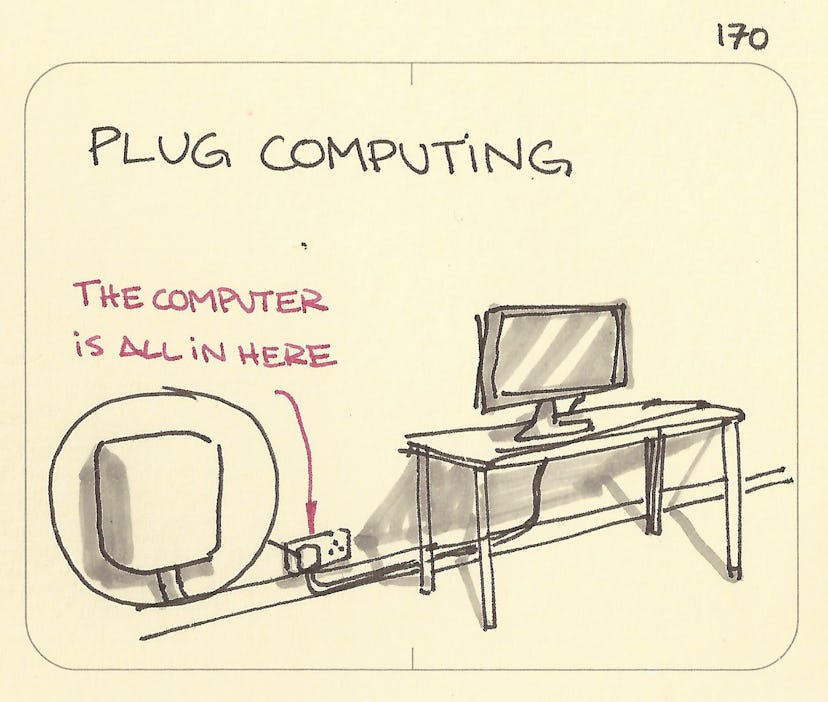 170
PLUG COMPUTING
THE COMPUTER
IS ALL IN HERE